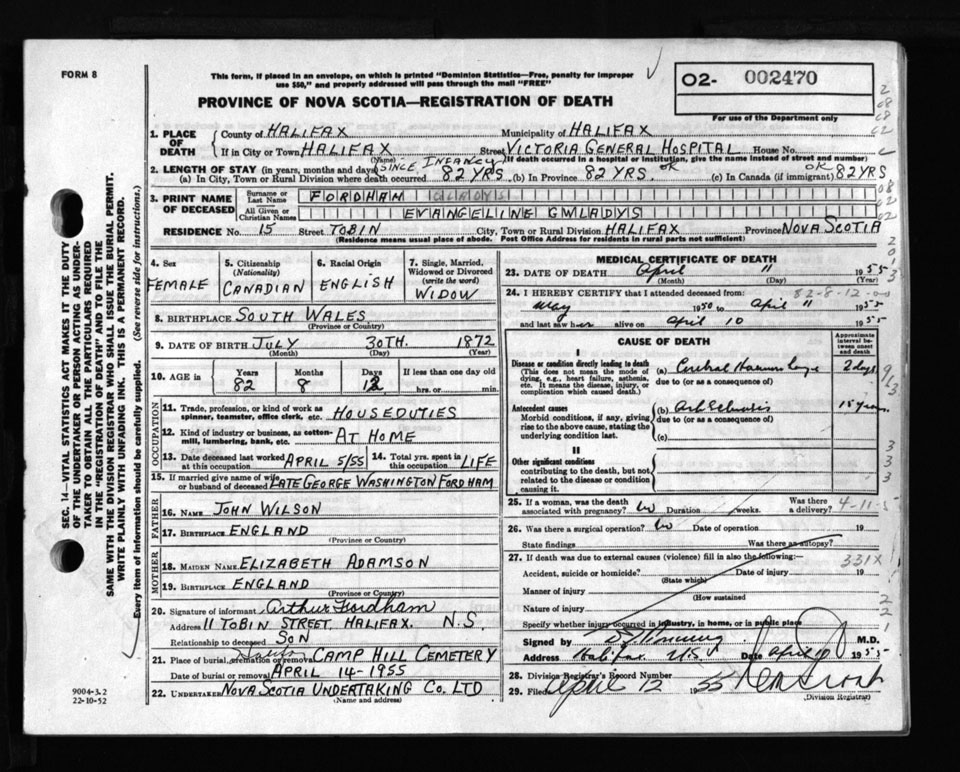 FORM 8
This form, if placed in an envelope, on which is printed "Dominion Statistics—Free, penalty for improper
use $50," and properly addressed will pass through the mail "FREE"
PROVINCE OF NOVA SCOTIA—REGISTRATION OF DEATH
O2- 002470
For use of the Department only
1. PLACE OF DEATH { County of HALIFAX Municipality of HALIFAX
If in City or Town HALIFAX Street VICTORIA GENERAL HOSPITAL House No.
(Name) (If death occurred in a hospital or institution, give the name instead of street and number)
2. LENGTH OF STAY (in years, months and days) (SINCE INFANCY
(a) In City, Town or Rural Division where death occurred 82 YRS. (b) In Province 82 YRS. OR (c) In Canada (if immigrant) OR 82 YRS
3. PRINT NAME OF DECEASED { Surname or Last Name FORDHAM
All Given or Christian Names EVANGELINE GWLADYS
RESIDENCE No. 15 Street TOBIN City, Town or Rural Division HALIFAX Province NOVA SCOTIA
(Residence means usual place of abode. Post Office Address for residents in rural parts not sufficient)
4. Sex FEMALE
5. Citizenship (Nationality) CANADIAN
6. Racial Origin ENGLISH
7. Single, Married, Widowed or Divorced (write the word) WIDOW
8. BIRTHPLACE SOUTH WALES
(Province or Country)
9. DATE OF BIRTH JULY 30TH. 1872
(Month) (Day) (Year)
10. AGE in { Years 82 Months 8 Days 12 If less than one day old
hrs. or min.
OCCUPATION
11. Trade, profession, or kind of work as spinner, teamster, office clerk, etc. HOUSEDUTIES
12. Kind of industry or business, as cotton-mill, lumbering, bank, etc. AT HOME
13. Date deceased last worked at this occupation APRIL 5/55 14. Total yrs. spent in this occupation LIFE
15. If married give name of wife or husband of deceased LATE GEORGE WASHINGTON FORDHAM
FATHER
16. NAME JOHN WILSON
17. BIRTHPLACE ENGLAND
(Province or Country)
MOTHER
18. MAIDEN NAME ELIZABETH ADAMSON
19. BIRTHPLACE ENGLAND
(Province or Country)
20. Signature of informant Arthur Fordham
Address 11 TOBIN STREET, HALIFAX. N.S.
Relationship to deceased SON
21. Place of burial, cremation or removal Halifax CAMP HILL CEMETERY
Date of burial or removal APRIL 14-1955
22. UNDERTAKER NOVA SCOTIA UNDERTAKING CO. LTD
(Name and address)
MEDICAL CERTIFICATE OF DEATH
23. DATE OF DEATH April 11 1955
(Month) (Day) (Year)
82-8-12
24. I HEREBY CERTIFY that I attended deceased from:
May 1950 to April 11 1955
and last saw her alive on April 10 1955
CAUSE OF DEATH
Approximate interval between onset and death
I
Disease or condition directly leading to death
(This does not mean the mode of dying, e.g., heart failure, asthenia, etc. It means the disease, injury, or complication which caused death.)
(a) Cerebral Haemorrhage 2 days
due to (or as a consequence of)
Antecedent causes
Morbid conditions, if any, giving rise to the above cause, stating the underlying condition last.
(b) 15 years
due to (or as a consequence of)
(c)
II
Other significant conditions
contributing to the death, but not related to the disease or condition causing it.
25. If a woman, was the death associated with pregnancy? No Duration weeks. Was there a delivery? 4-11-5
26. Was there a surgical operation? No Date of operation 19
State findings Was there an autopsy?
27. If death was due to external causes (violence) fill in also the following:
331X
Accident, suicide or homicide? Date of injury 19
(State which)
Manner of injury
(How sustained
Nature of injury
Specify whether injury occurred in industry, in home, or in public place
Signed by M.D.
Address Halifax, N.S. Date April 1955
28. Division Registrar's Record Number
29. Filed April 12 1955
(Division Registrar)
SEC. 14—VITAL STATISTICS ACT MAKES IT THE DUTY
OF THE UNDERTAKER OR PERSON ACTING AS UNDER-
TAKER TO OBTAIN ALL THE PARTICULARS REQUIRED
IN THE "REGISTRATION OF DEATH" AND TO FILE THE
SAME WITH THE DIVISION REGISTRAR WHO SHALL ISSUE THE BURIAL PERMIT.
WRITE PLAINLY WITH UNFADING INK. THIS IS A PERMANENT RECORD.
Every item of information should be carefully supplied. (See reverse side for instructions.)
9004-3.2
22-10-52